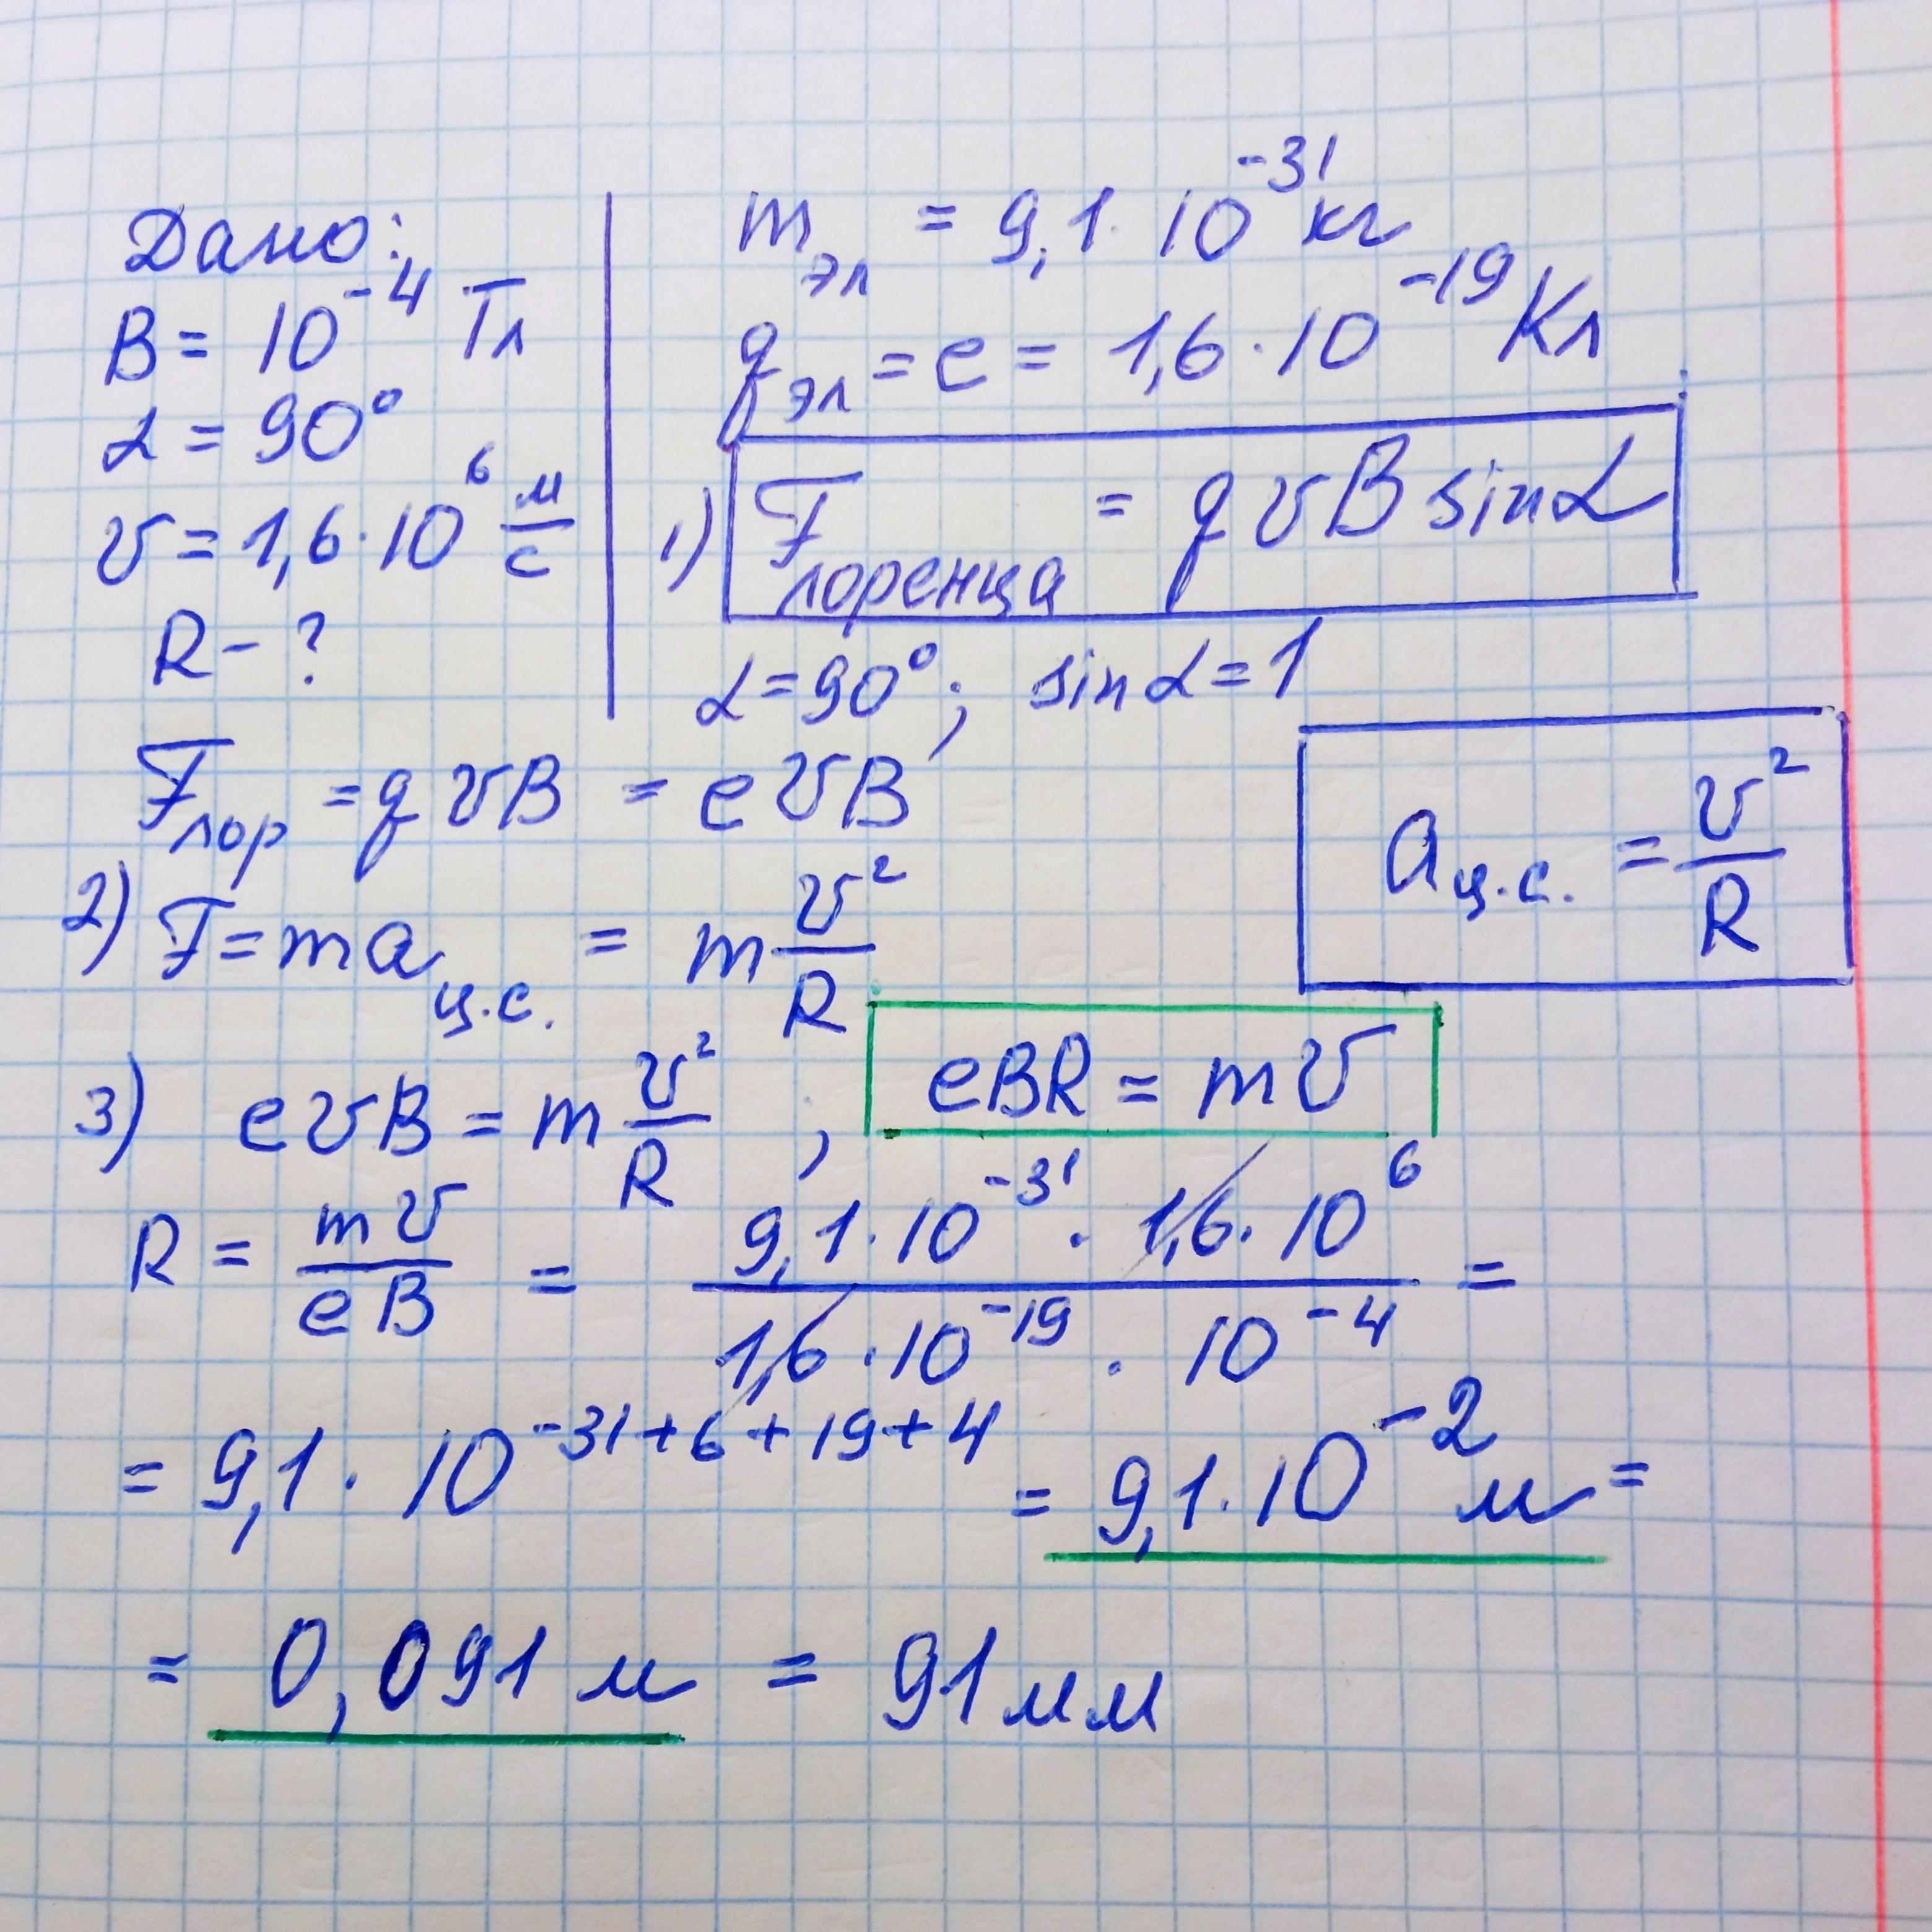 Дано:
B = 10⁻⁴ Тл
α = 90°
v = 1,6·10⁶ м/с
R - ?
mэл = 9,1·10⁻³¹ кг
qэл = e = 1,6·10⁻¹⁹ Кл
1) Fлоренца = qvB sinα
α = 90°; sinα = 1
Fлор = qvB = evB
aц.с. = v²/R
2) F = maц.с. = m v²/R
3) evB = m v²/R , eBR = mv
R = mv/eB = 9,1·10⁻³¹ · 1,6·10⁶ / 1,6·10⁻¹⁹ · 10⁻⁴ =
= 9,1·10⁻³¹⁺⁶⁺¹⁹⁺⁴ = 9,1·10⁻² м =
= 0,091 м = 91 мм